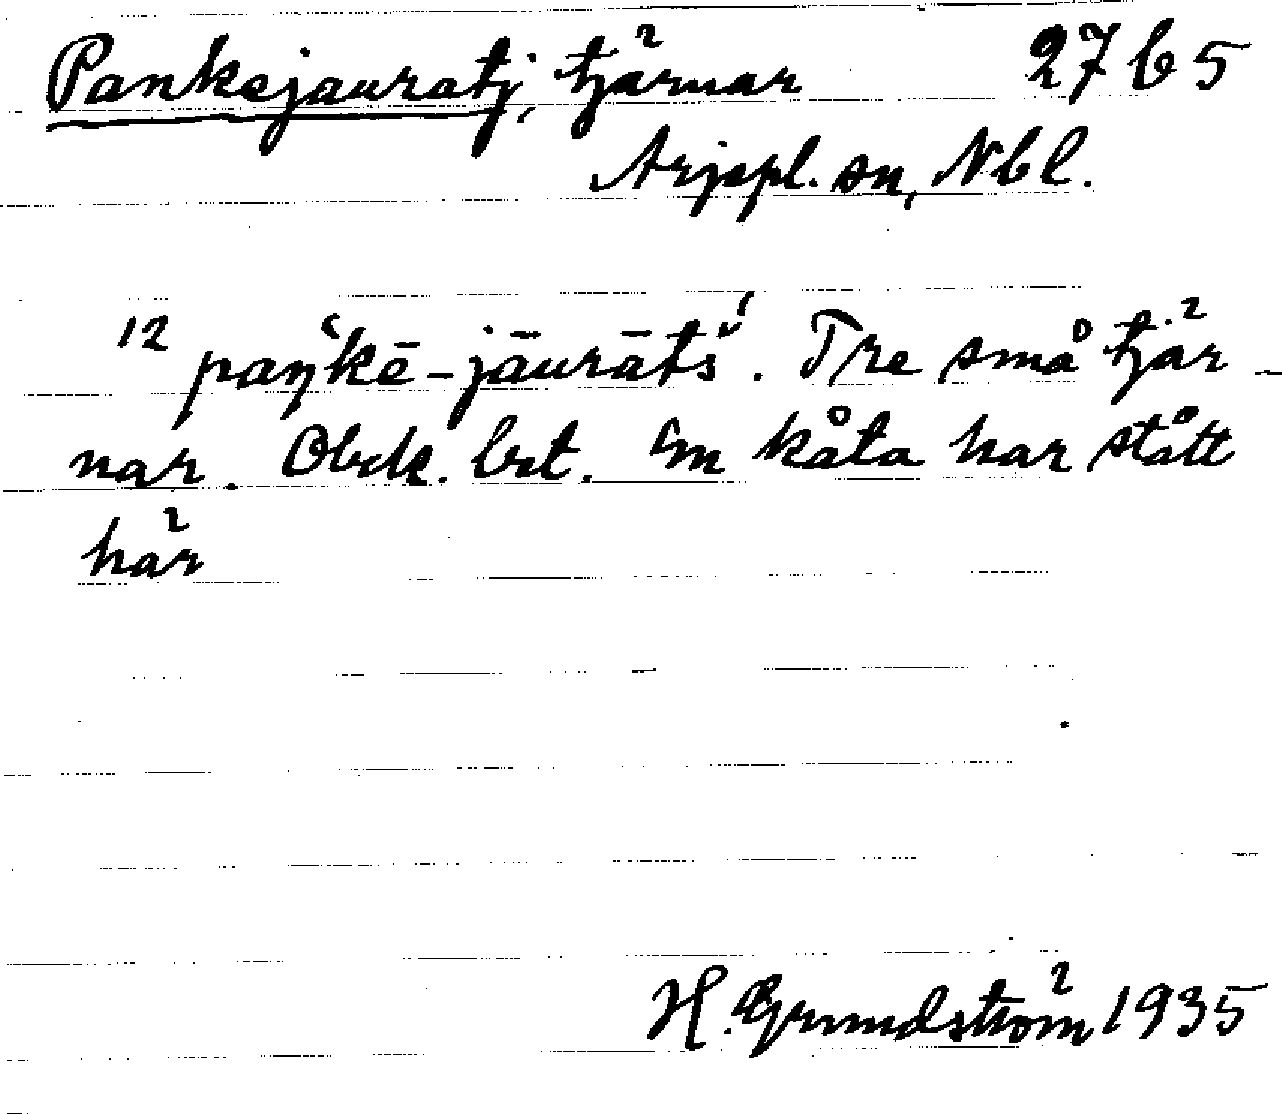 Pankejauratj, tjärnar 27 b 5
Arjepl. sn, Nbl.
12 paŋ'kē-jāurāts̆'. Tre små tjär-
nar. Obek. bet. En kåta har stått
här
H. Grundström 1935